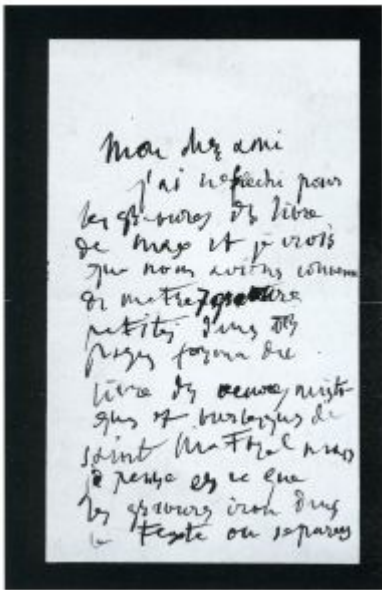 Mon cher ami
j'ai reflechi pour
les gravures du livre
de max et je crois
que nous avions convenu
de mettre 7 gravure
petites dans
pages
livre des œuvres misti
ques et burlesques de
saint Matorel mais
je pense es ce que
les gravures iron dans
le texte ou separes